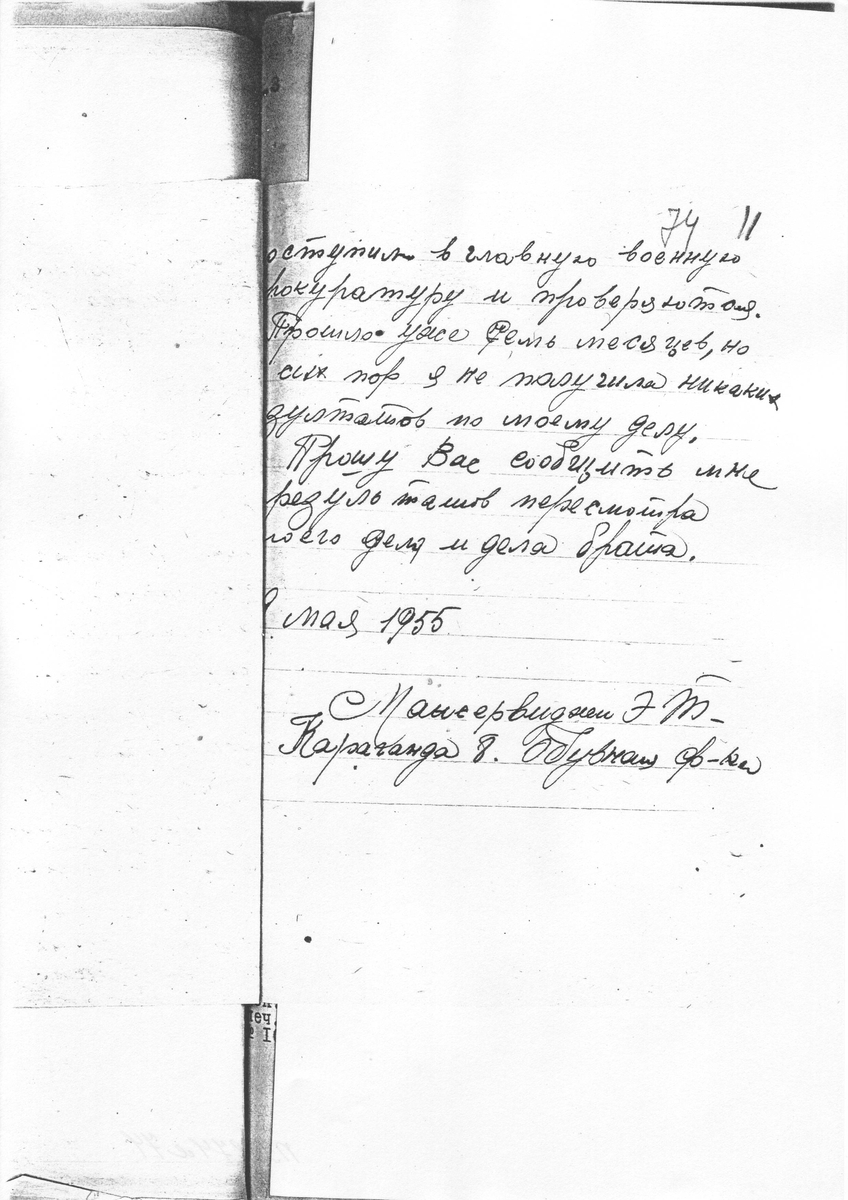 74 11
оступило в главную военную
рокуратуру и проверяются.
Прошло уже семь месяцев, но
сих пор я не получила никаких
зултатов по моему делу.
Прошу Вас сообщить мне
результатов пересмотра
моего дела и дела брата.
мая 1955
Мансервиджи Э Т-
Караганда 8. Обувная ф-ка